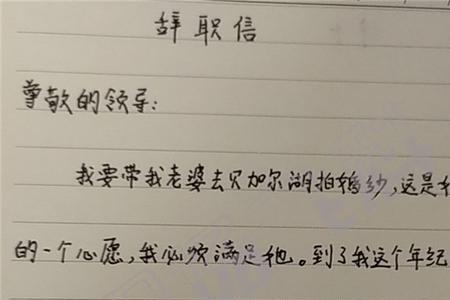 辞职信
尊敬的领导：
我要带我老婆去贝加尔湖拍婚纱，这是
的一个心愿，我必须满足他。到了我这个年纪